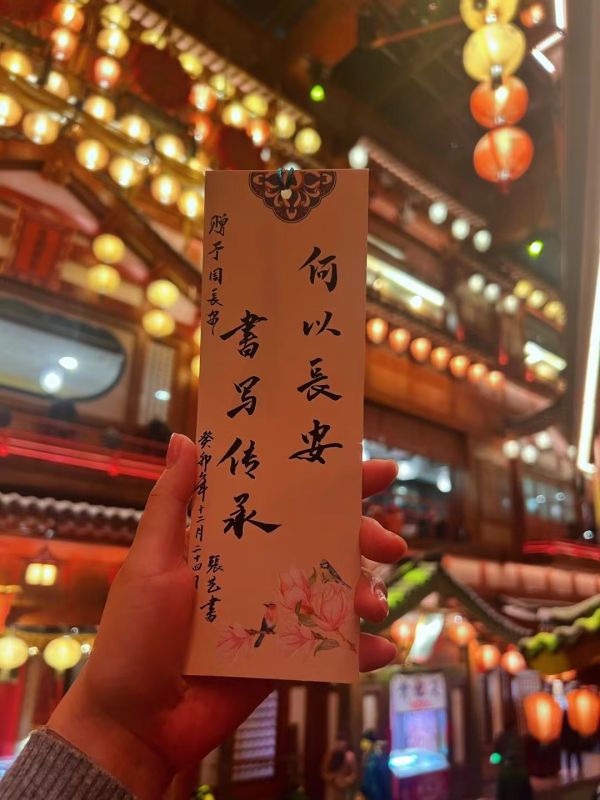 何以長安
書写传承
贈于周長安
癸卯年十二月二十四日
張艺書